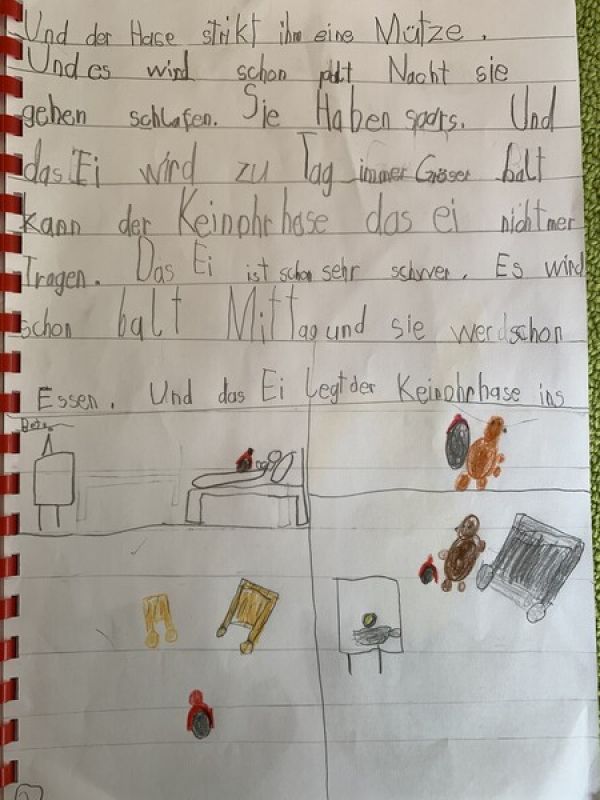 Und der Hase strikt ihm eine Mütze.
Und es wird schon Nacht sie
gehen schlafen. Sie Haben spars. Und
das Ei wird zu Tag immer Gröser balt
kann der Keinohrhase das ei nicht mer
Tragen. Das Ei ist schon sehr schwer. Es wird
schon balt Mittag und sie werd schon
Essen. Und das Ei Legt der Keinohrhase ins